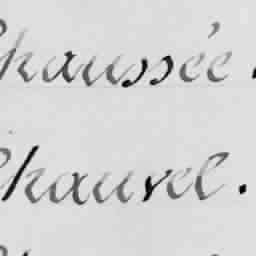 Chaussée.
Chauvel.